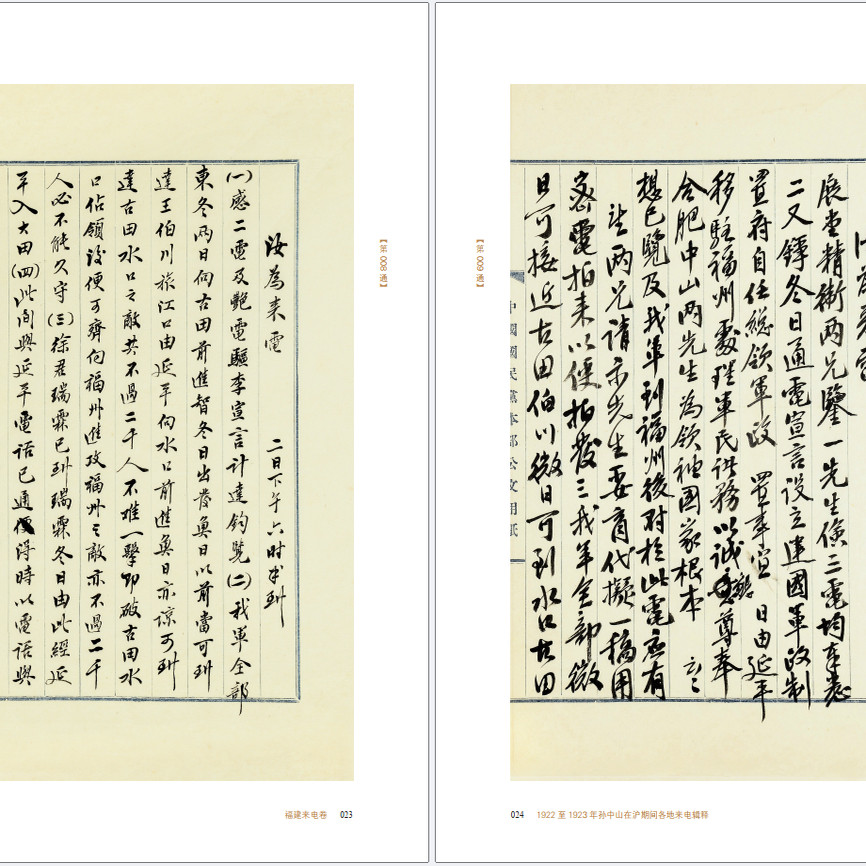 汝為来電　二日下午六时半到
(一)感二電及艷電驅李宣言計達鈞覧(二)我軍全部
東冬兩日向古田前進智冬日出發魚日以前當可到
達王伯川旅江口由延平向水口前進魚日亦諒可到
達古田水口之敵共不過二千人不难一擊即破古田水
口佔領後便可齊向福州進攻福州之敵亦不過二千
人必不能久守(三)徐君瑞霖已到瑞霖冬日由此經延
平入大田(四)此间與延平電话已通得時以電话與
【第 008 通】
福建来电卷 023
【第 009 通】
展堂精衛兩兄鑒一先生儉三電均奉悉
二又錚冬日通電宣言设立建國軍政制
置府自任総領軍政　置事宜　日由延平
移駐福州處理軍民諸務以诚尊奉
合肥中山两先生為领袖國家根本
想已覧及我軍到福州後对於此電應有
望两兄請示先生委商代擬一稿用
密電拍来以便拍發三我军全部微
日可接近古田伯川微日可到水口古田
中國國民黨本部公文用紙
024 1922 至 1923 年孙中山在沪期间各地来电辑释